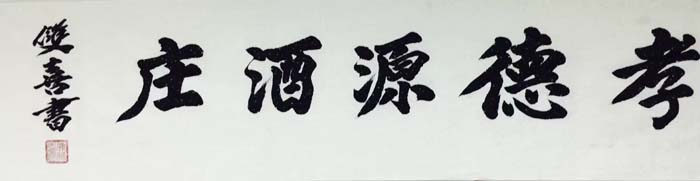 孝德源酒庄
雙喜書